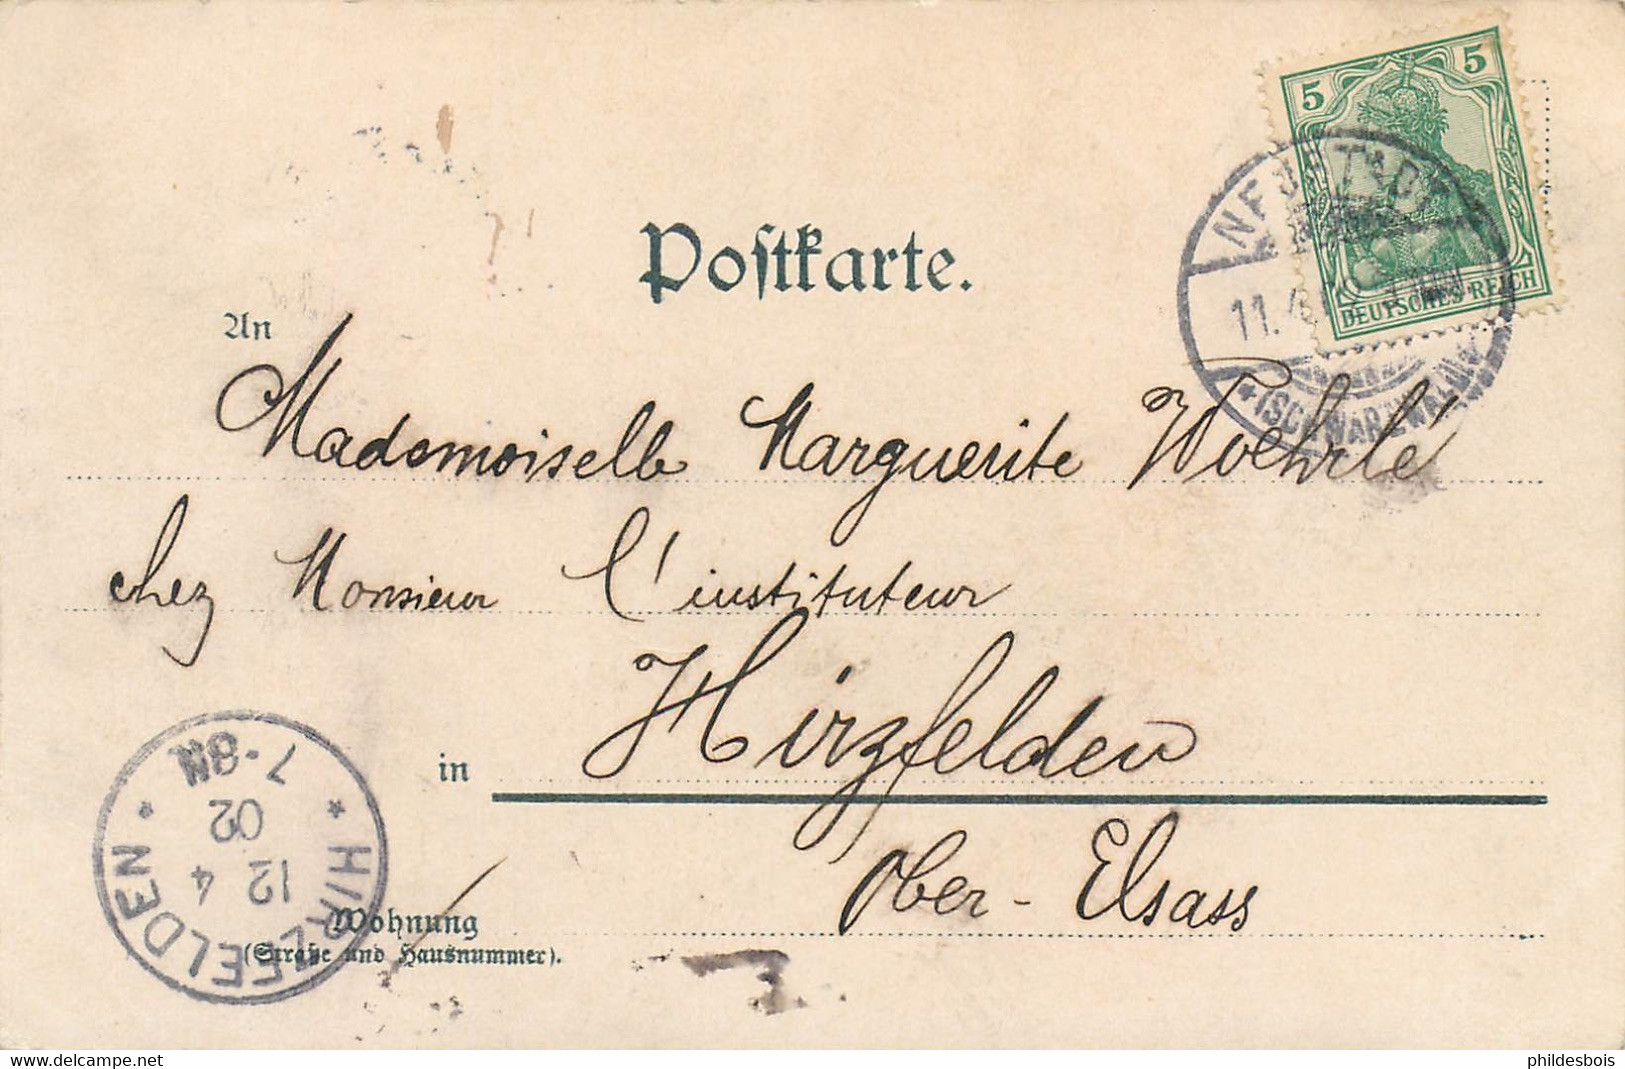 5 5
DEUTSCHES REICH
NEUSTADT
11.4.02
* (SCHWARZWALD)
Postkarte.
An
Mademoiselle Marguerite Woehrlé
chez Monsieur l'instituteur
in Hirzfelden
Ober-Elsass
Wohnung
(Straße und Hausnummer).
* HIRZFELDEN *
12 4
02
7-8N
phildesbois